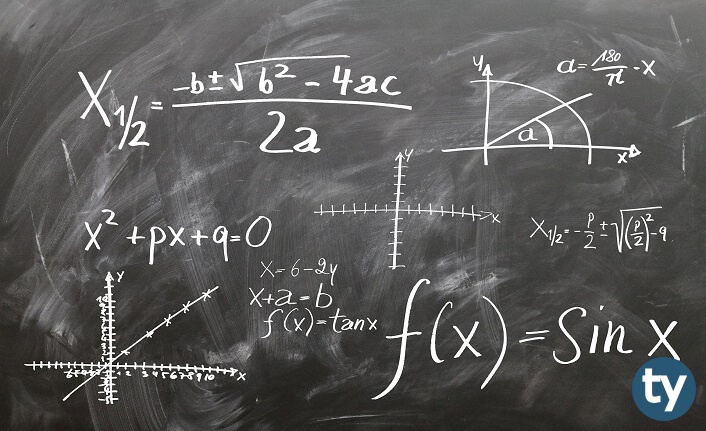 X1/2 = -b ± √b² - 4ac / 2a
y
a = 180/π - x
a
x
y
x
x² + px + q = 0
X1/2 = - p/2 ± √(p/2)² - q
x = 6 - 2y
x + a = b
f(x) = tan x
f(x) = Sin x
y
x
ty